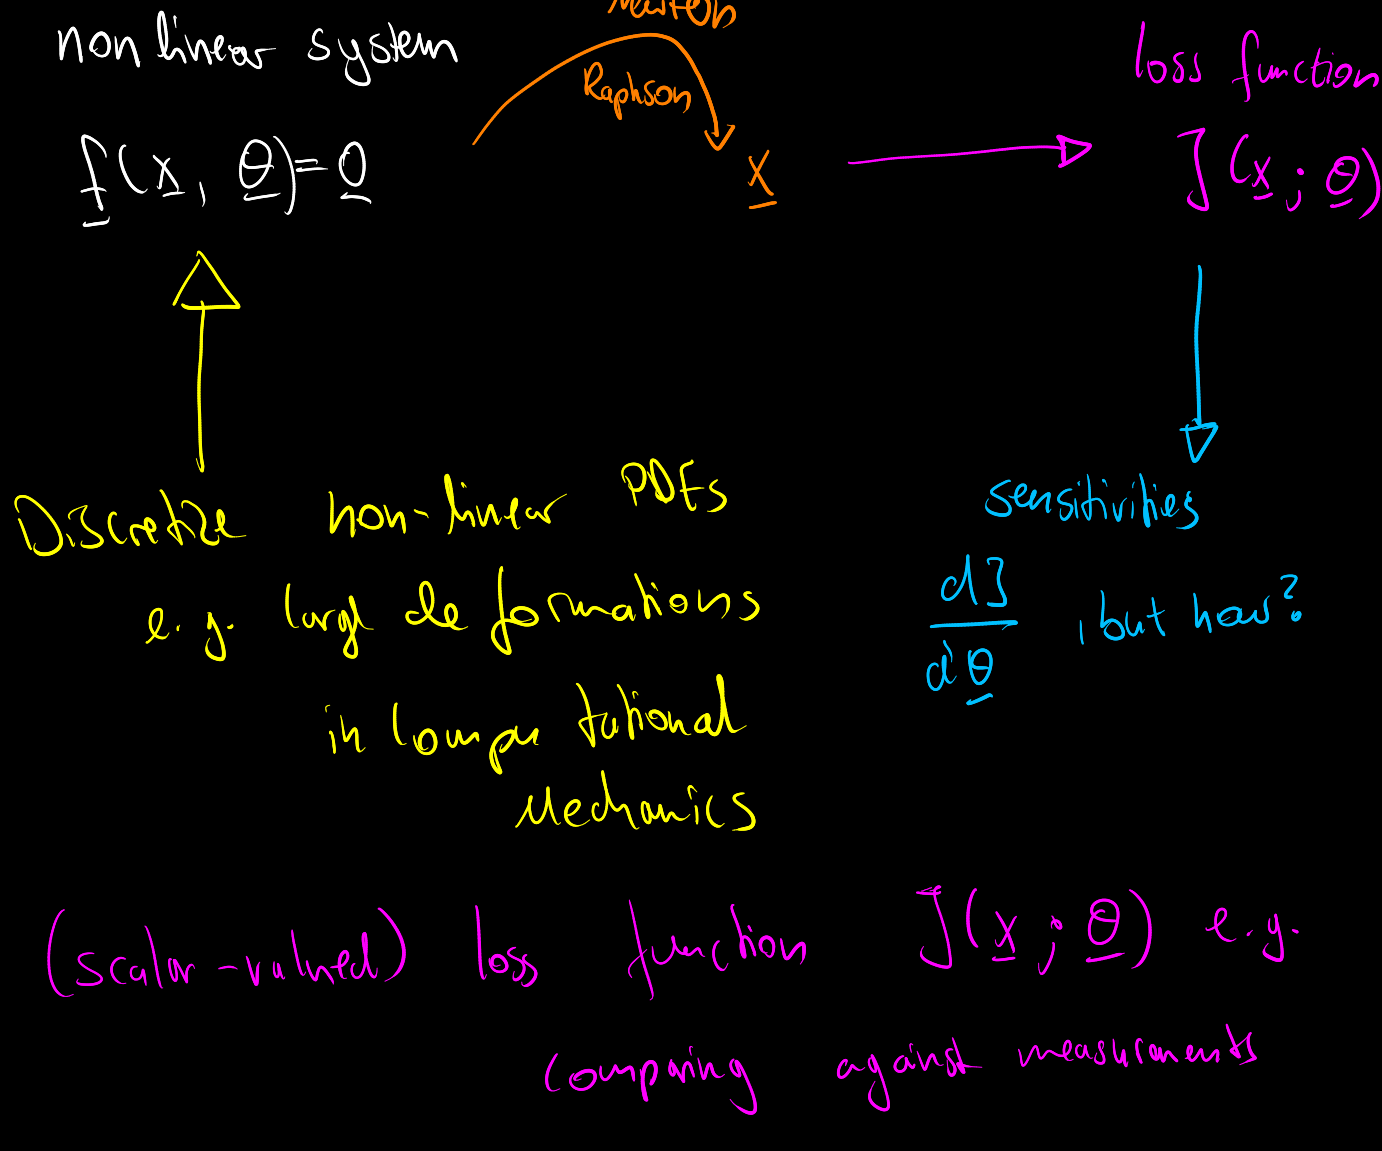 non linear system
Newton
Raphson
loss function
f(x, θ)=0
x
J(x; θ)
Discretize non-linear PDEs
e.g. large deformations
in computational
Mechanics
sensitivities
dJ/dθ , but how?
(scalar-valued) loss function J(x; θ) e.g.
comparing against measurements